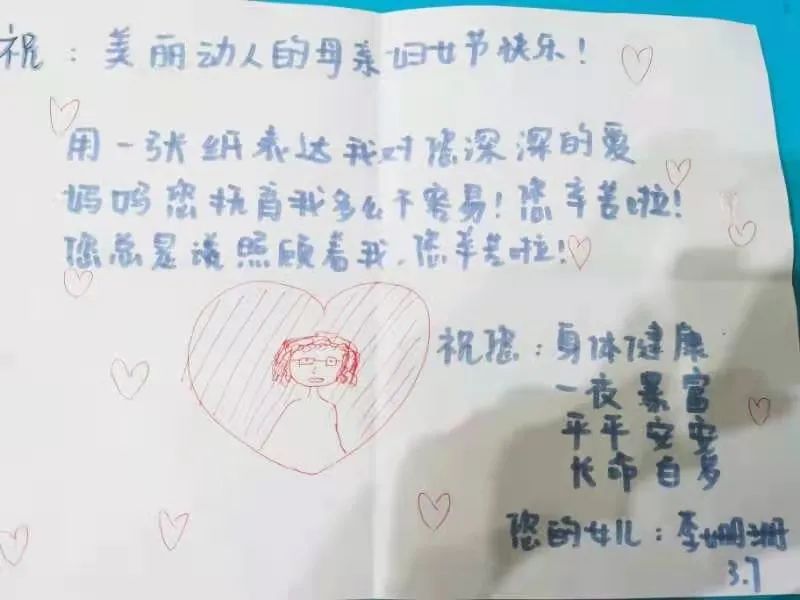 祝：美丽动人的母亲妇女节快乐！
用一张纸表达我对您深深的爱
妈妈您抚育我多么不容易！您辛苦啦！
您总是说照顾着我，您辛苦啦！
祝您：身体健康
一夜暴富
平平安安
长命百岁
您的女儿：李姗姗
3.7